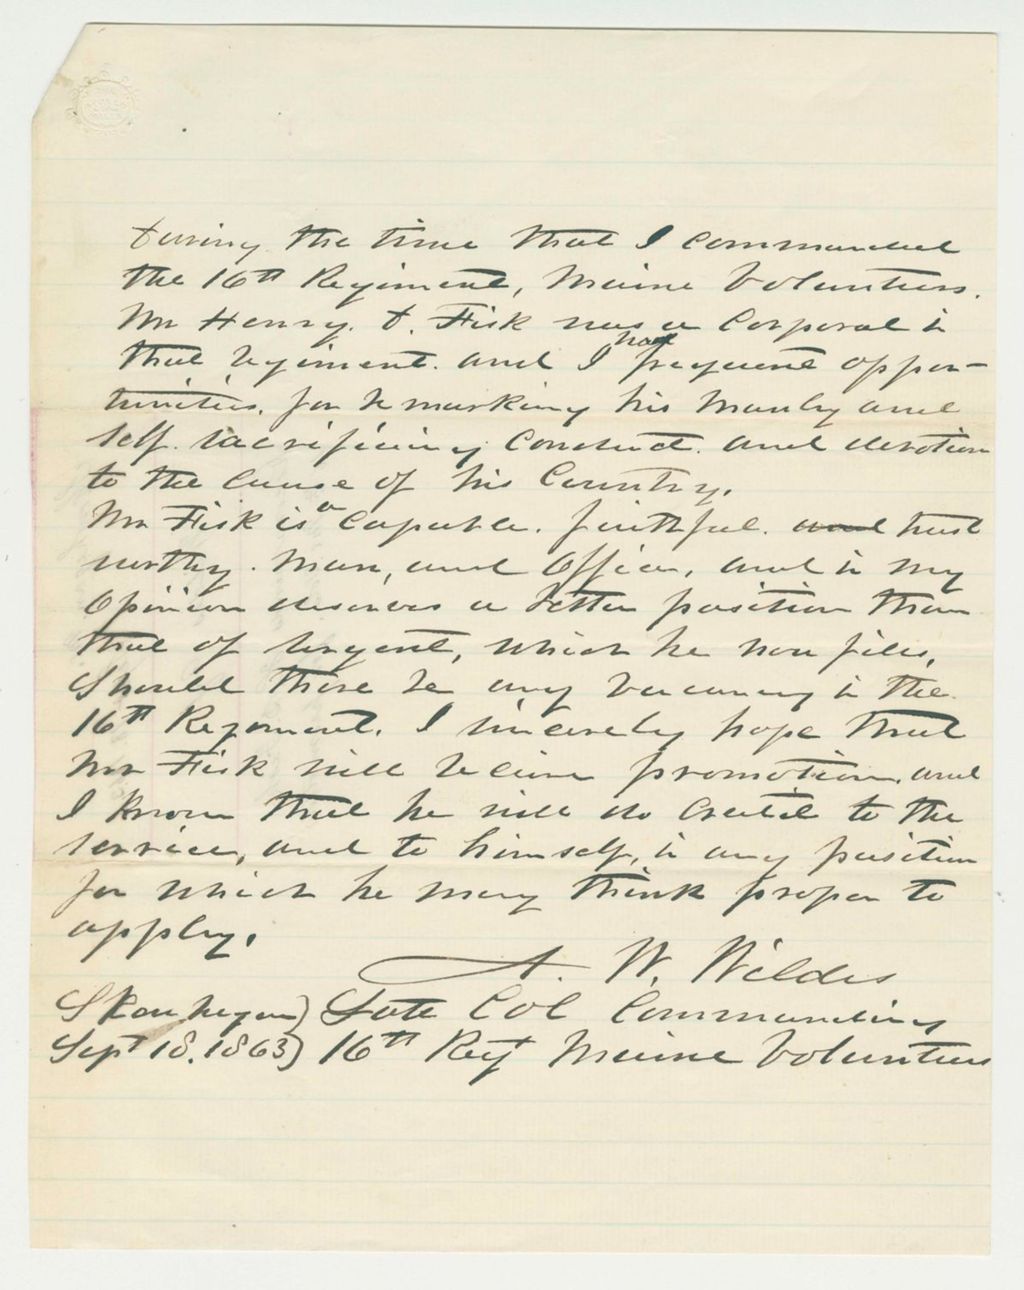 During the time that I commanded
the 16th Regiment, Maine Volunteers.
Mr Henry. D. Fisk was a Corporal in
that regiment. and I had frequent oppor-
tunities. for remarking his manly and
self. sacrificing Conduct. and devotion
to the cause of his Country.
Mr Fisk is a Capable. faithful. and trust
worthy. man, and Officer, and in my
Opinion deserves a better position than
that of sergent, which he now fills,
Should there be any vacancy in the
16th Regiment. I sincerely hope that
Mr Fisk will receive promotion, and
I know that he will do Credit to the
service, and to himself, in any position
for which he may think proper to
apply.
A. W. Wildes
Skowhegan) Late Col Commanding
Sept 18. 1863) 16th Regt Maine Volunteers